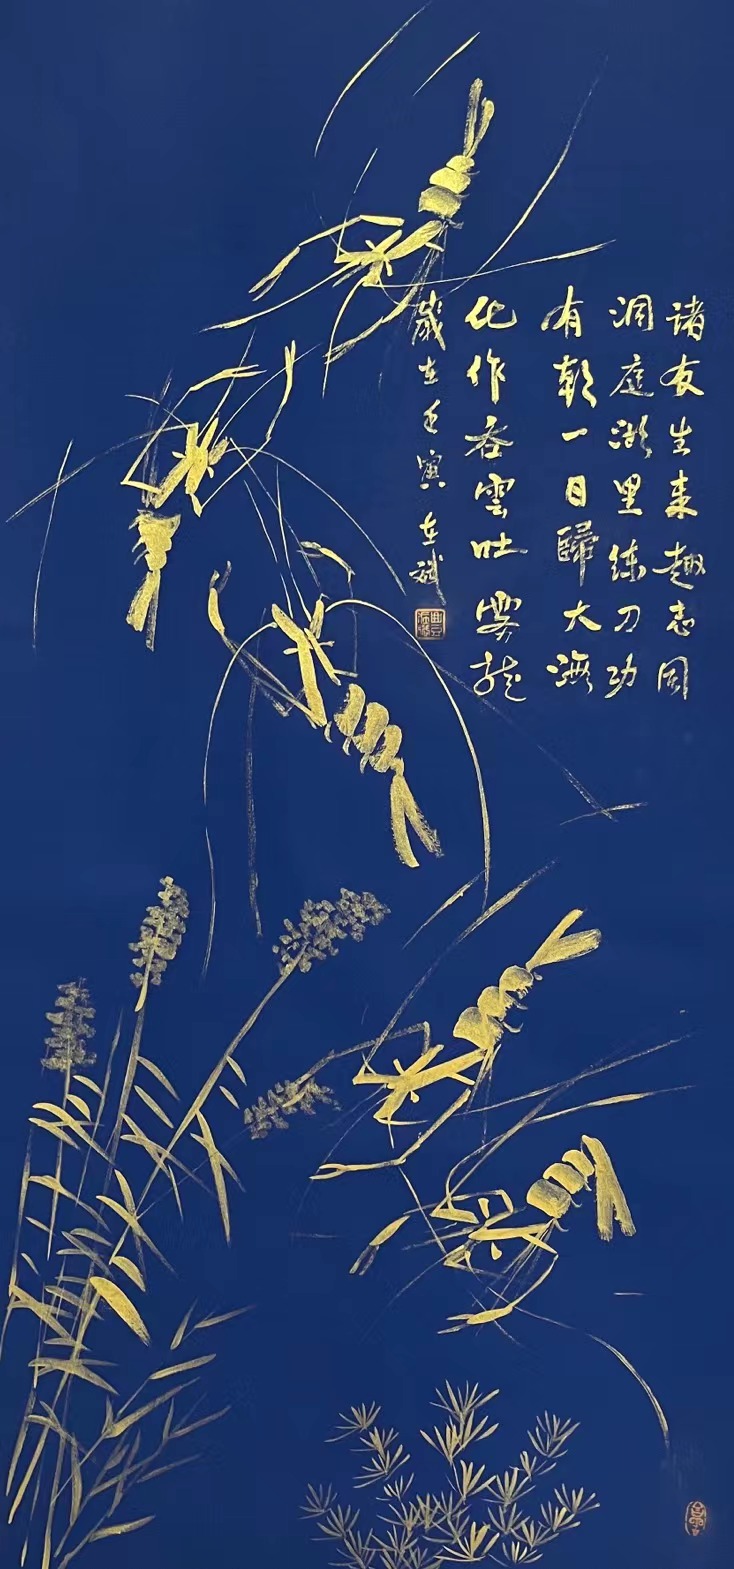 诸友生来趣志同
洞庭湖里练刀功
有朝一日歸大海
化作吞雲吐雾龙
歲在壬寅 在斌